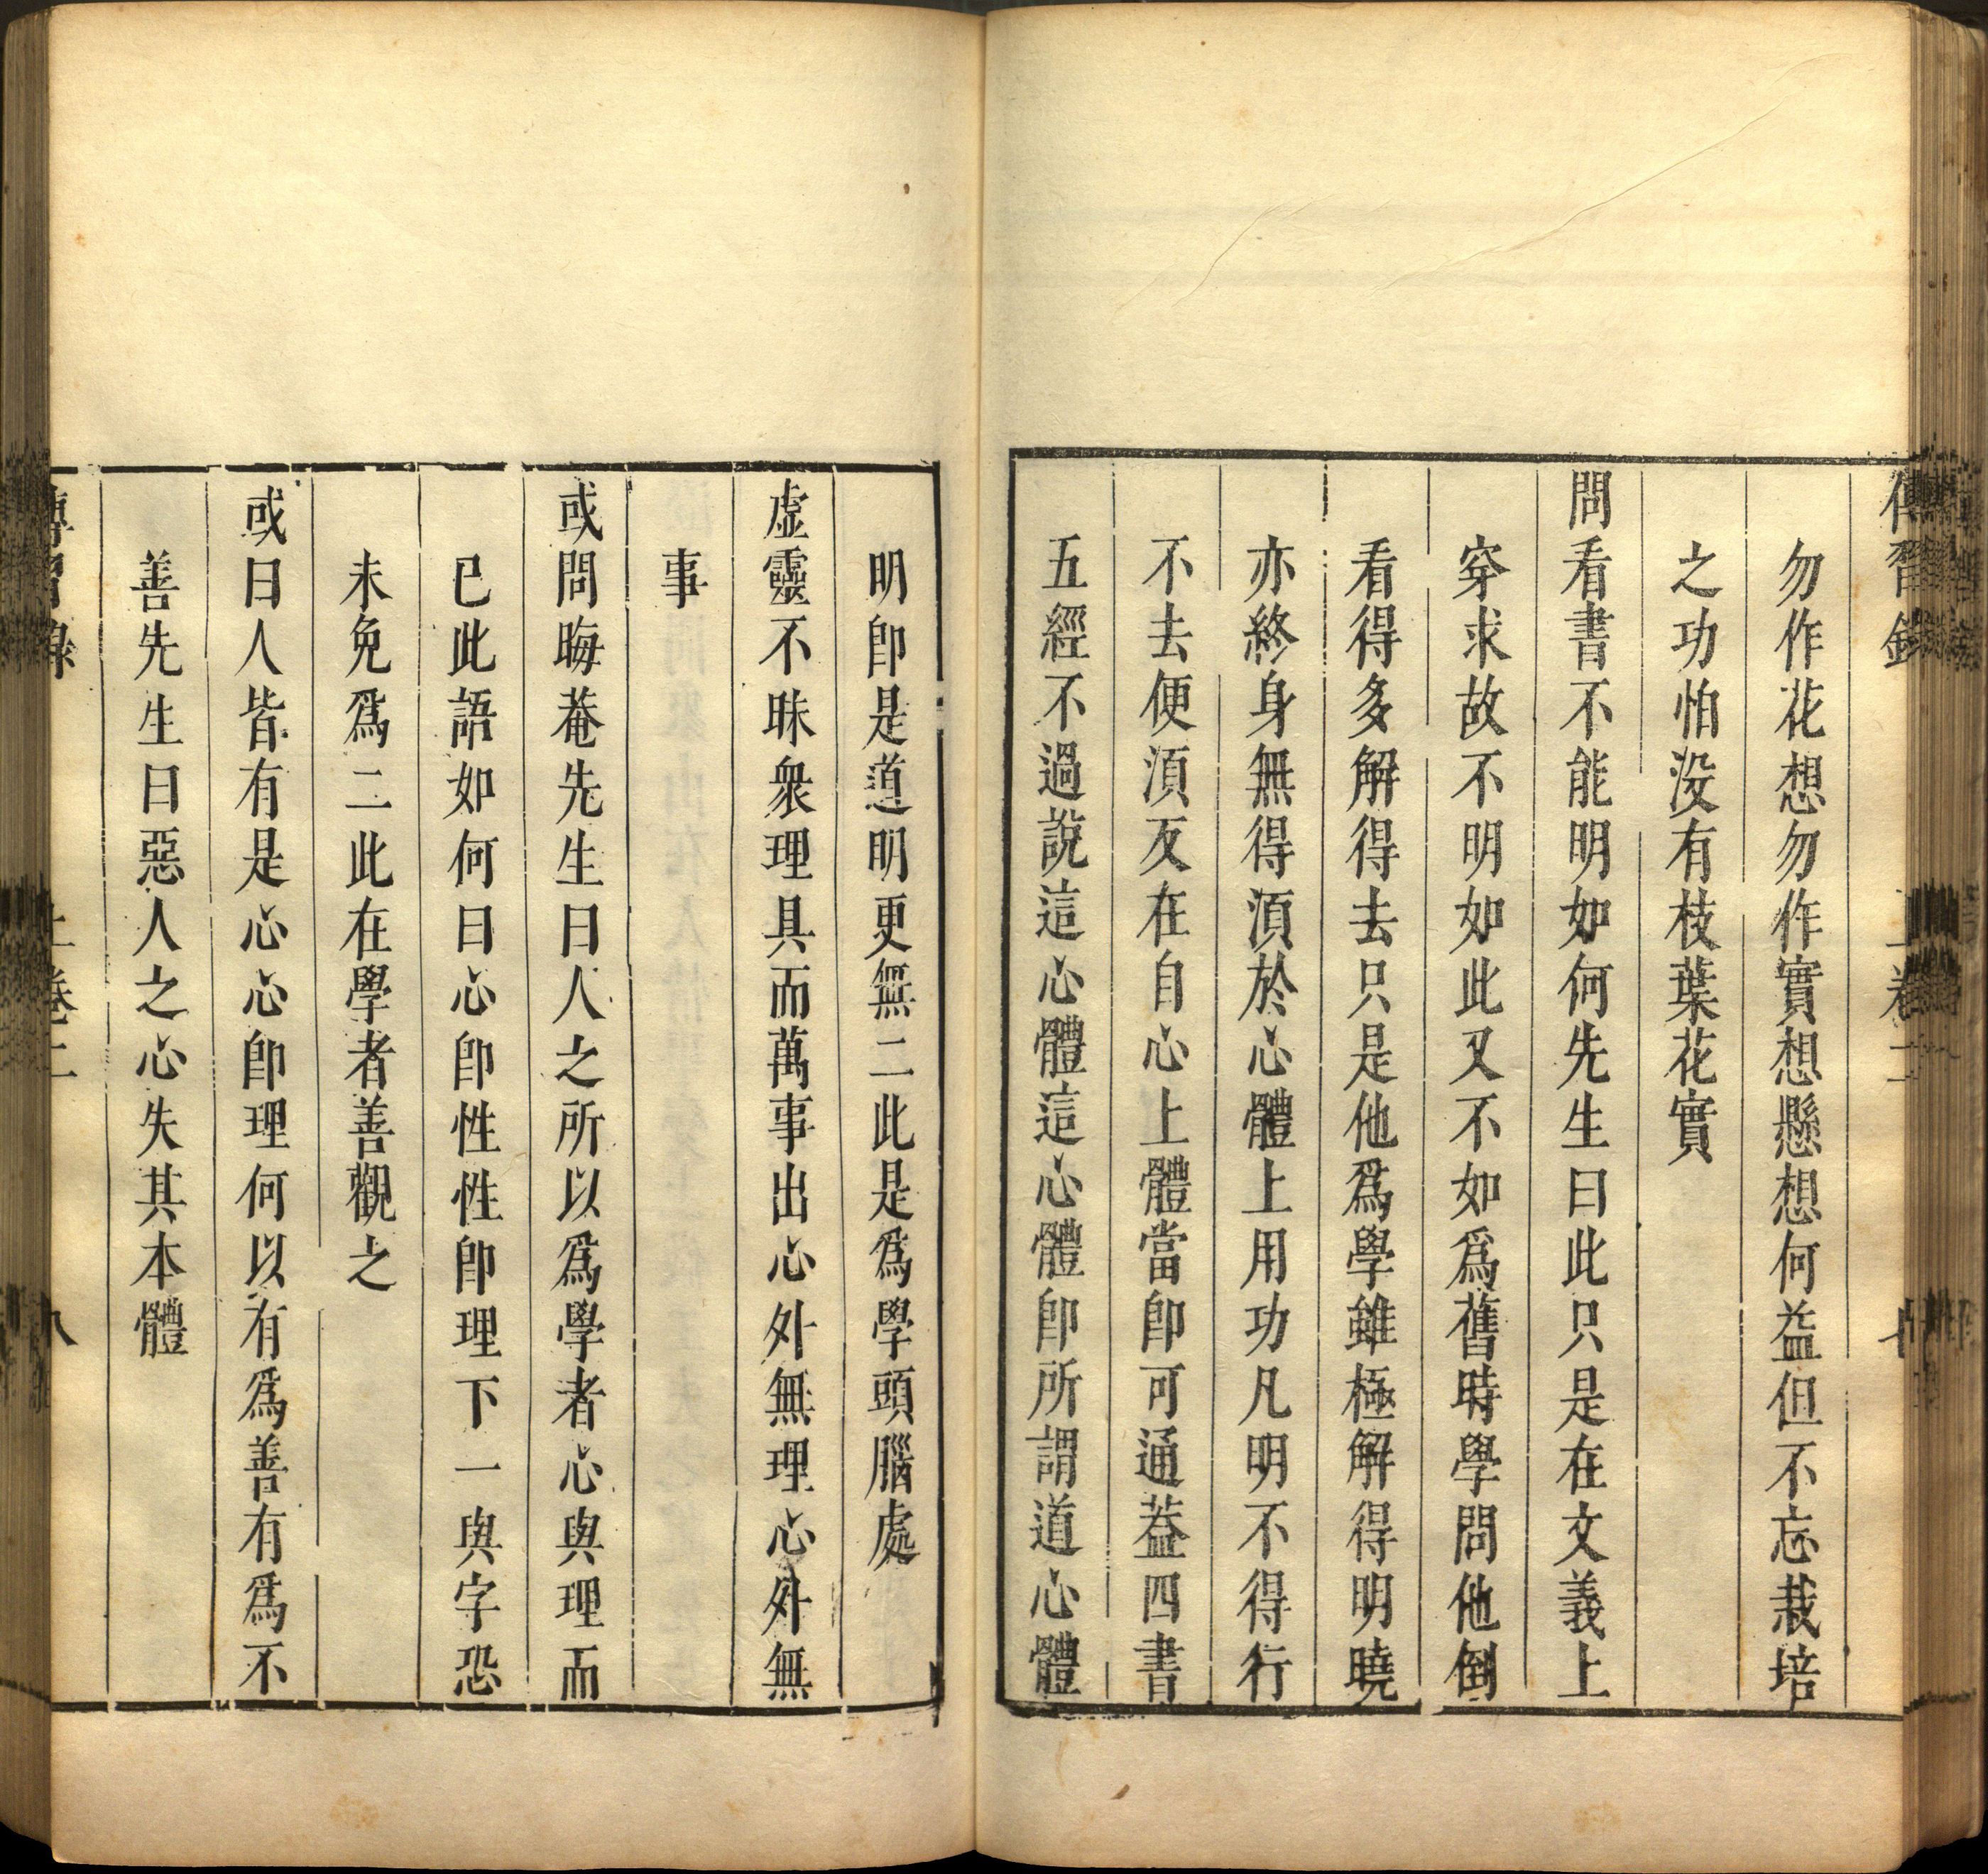 傳習錄 上卷二 七
勿作花想勿作實想懸想何益但不忘栽培
之功怕沒有枝葉花實
問看書不能明如何先生曰此只是在文義上
穿求故不明如此又不如爲舊時學問他倒
看得多解得去只是他爲學雖極解得明曉
亦終身無得湏於心體上用功凡明不得行
不去便湏反在自心上體當卽可通葢四書
五經不過說這心體這心體卽所謂道心體
明卽是道明更無二此是爲學頭腦處
虛靈不昧衆理具而萬事出心外無理心外無
事
或問晦菴先生曰人之所以爲學者心與理而
已此語如何曰心卽性性卽理下一與字恐
未免爲二此在學者善觀之
或曰人皆有是心心卽理何以有爲善有爲不
善先生曰惡人之心失其本體
傳習錄 上卷二 八